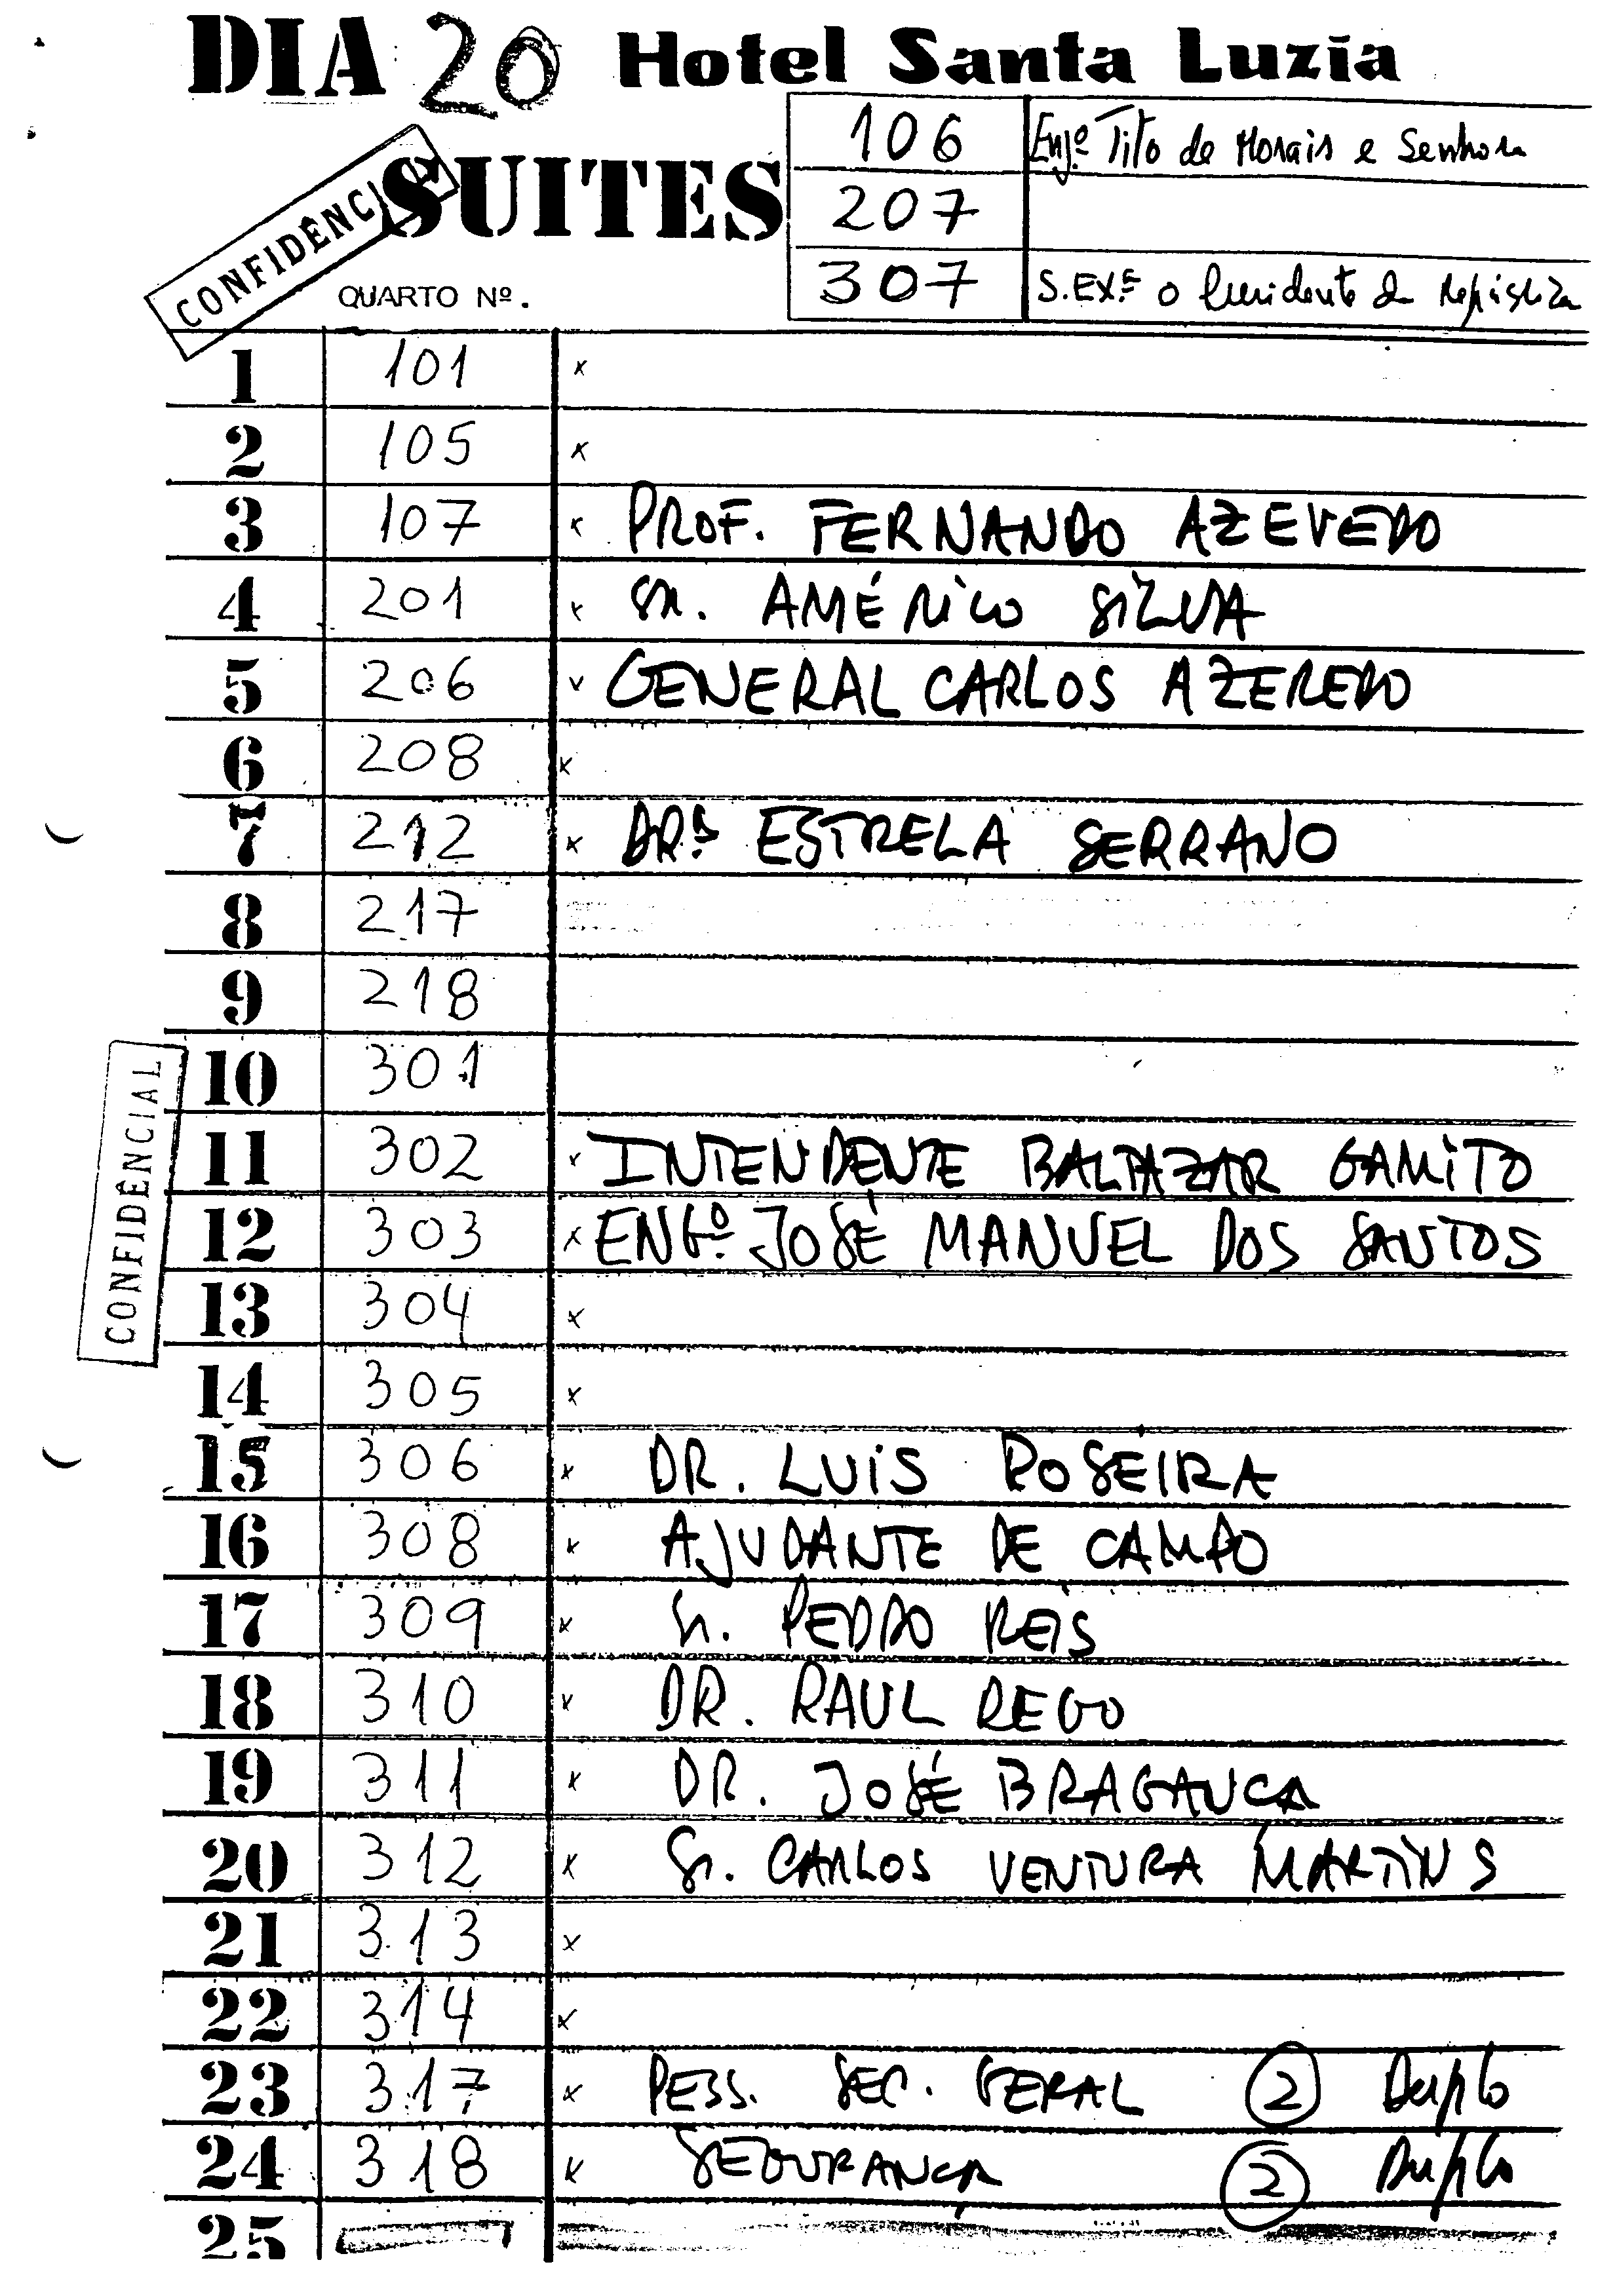 DIA 20 Hotel Santa Luzia
CONFIDÊNCIAL
SUITES
106 Engº Tito de Morais e Senhora
207
307 S. EXª o Presidente da República
QUARTO Nº.
1 101 x
2 105 x
3 107 x PROF. FERNANDO AZEVEDO
4 201 x SR. AMÉRICO SILVA
5 206 x GENERAL CARLOS AZEREDO
6 208 x
7 212 x DRª ESTRELA SERRANO
8 217
9 218
10 301
CONFIDÊNCIAL
11 302 x INTENDENTE BALTAZAR GAMITO
12 303 x ENGº JOSÉ MANUEL DOS SANTOS
13 304 x
14 305 x
15 306 x DR. LUIS ROSEIRA
16 308 x AJUDANTE DE CAMPO
17 309 x Sr. PEDRO REIS
18 310 x DR. RAUL REGO
19 311 x DR. JOSÉ BRAGANCA
20 312 x Sr. CARLOS VENTURA MARTINS
21 313 x
22 314 x
23 317 x PESS. SEC. GERAL 2 Duplo
24 318 x SEGURANÇA 2 Duplo
25